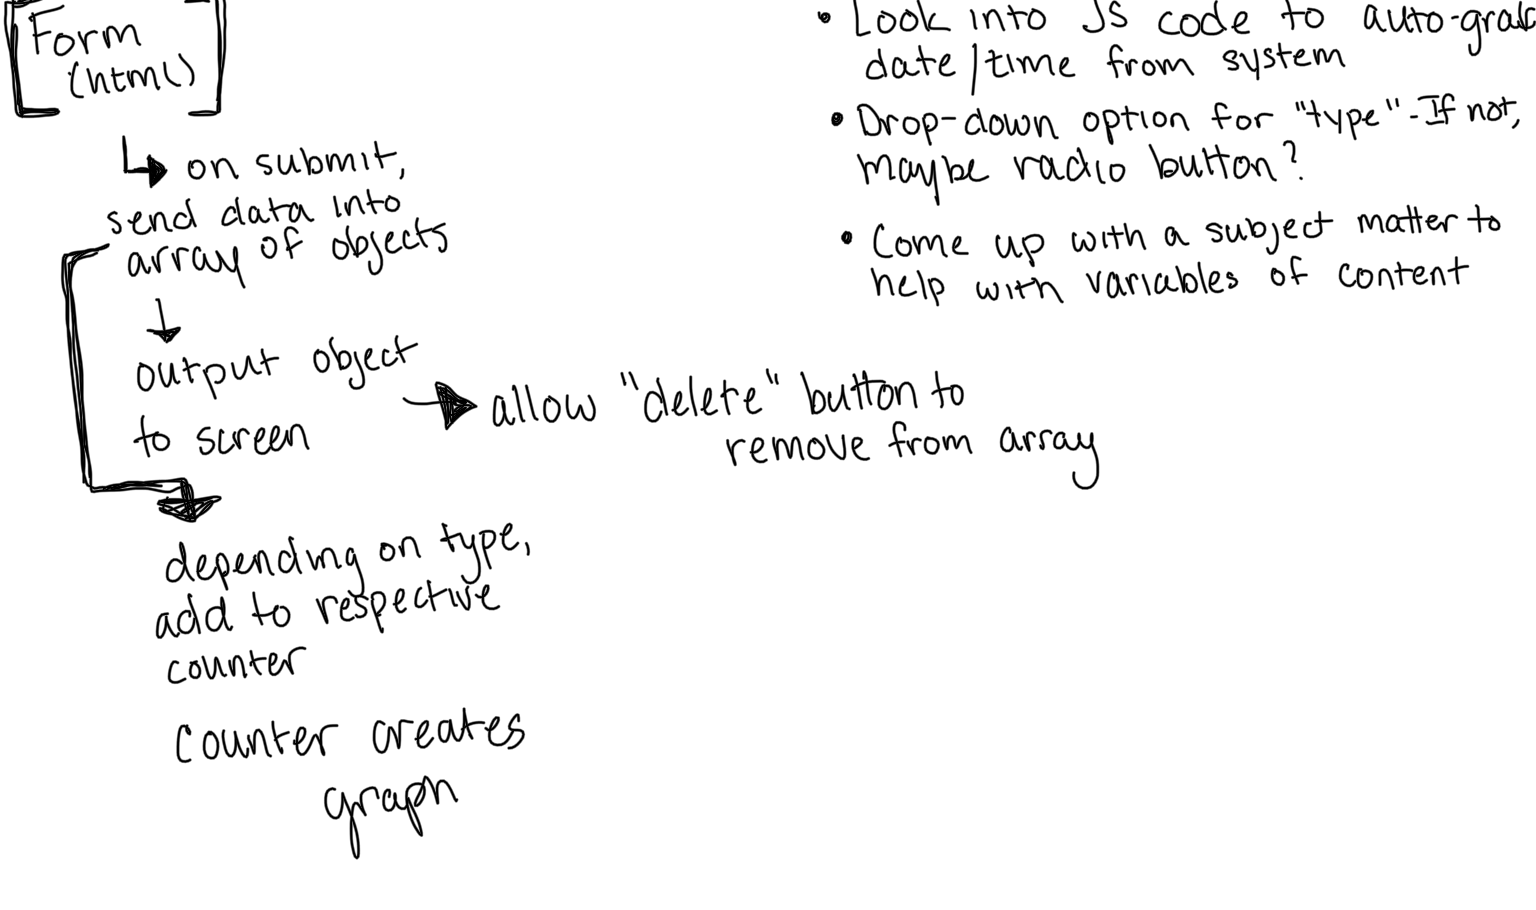 Form
(html)
on submit,
send data into
array of objects
output object
to screen
allow "delete" button to
remove from array
depending on type,
add to respective
counter
Counter creates
graph
• Look into JS code to auto-grab
date/time from system
• Drop-down option for "type" - If not,
maybe radio button?
• Come up with a subject matter to
help with variables of content